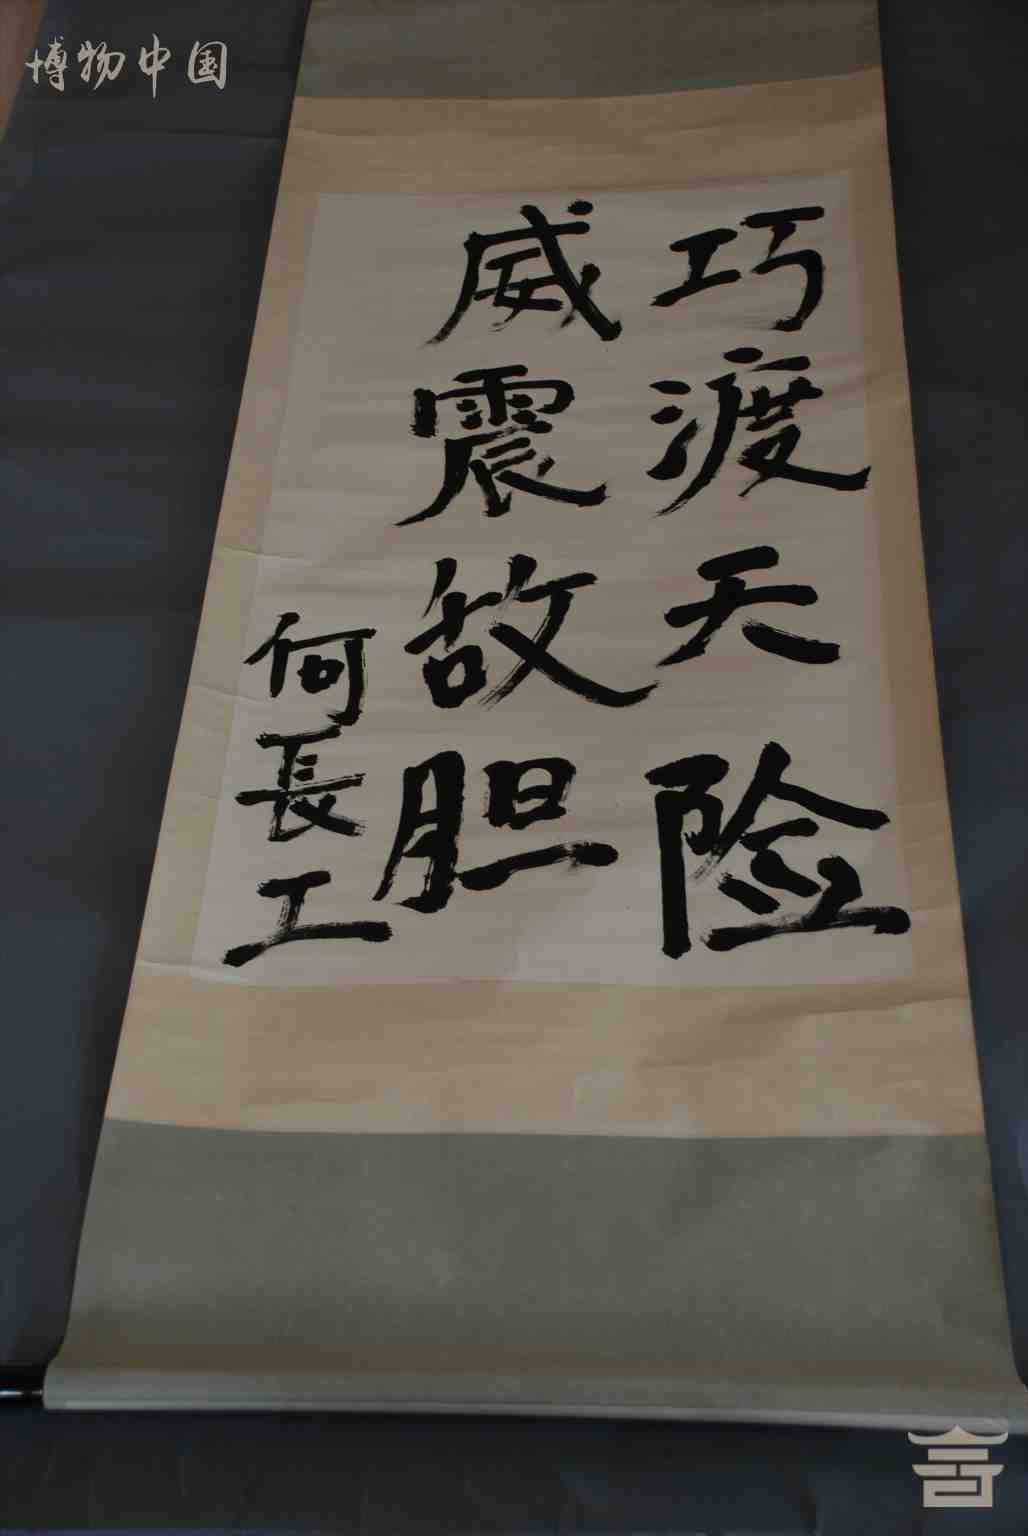 博物中国
巧渡天险
威震故胆
何長工